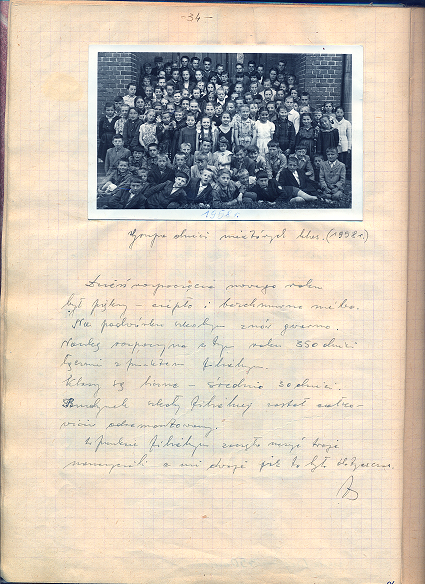 - 34 -
1952 r.
Grupa dzieci niektórych klas. (1952 r.)
Dzień rozpoczęcia nowego roku
był piękny - ciepło i bezchmurne niebo.
Na podwórku szkolnym znów gwarno.
Naukę rozpoczyna w tym roku 350 dzieci
łącznie z punktem filialnym.
Klasy są liczne - średnio 30 dzieci.
Budynek szkoły filialnej został całko-
wicie odremontowany.
W punkcie filialnym zaczęło uczyć troje
nauczycieli a nie dwoje jak to było dotychczas.